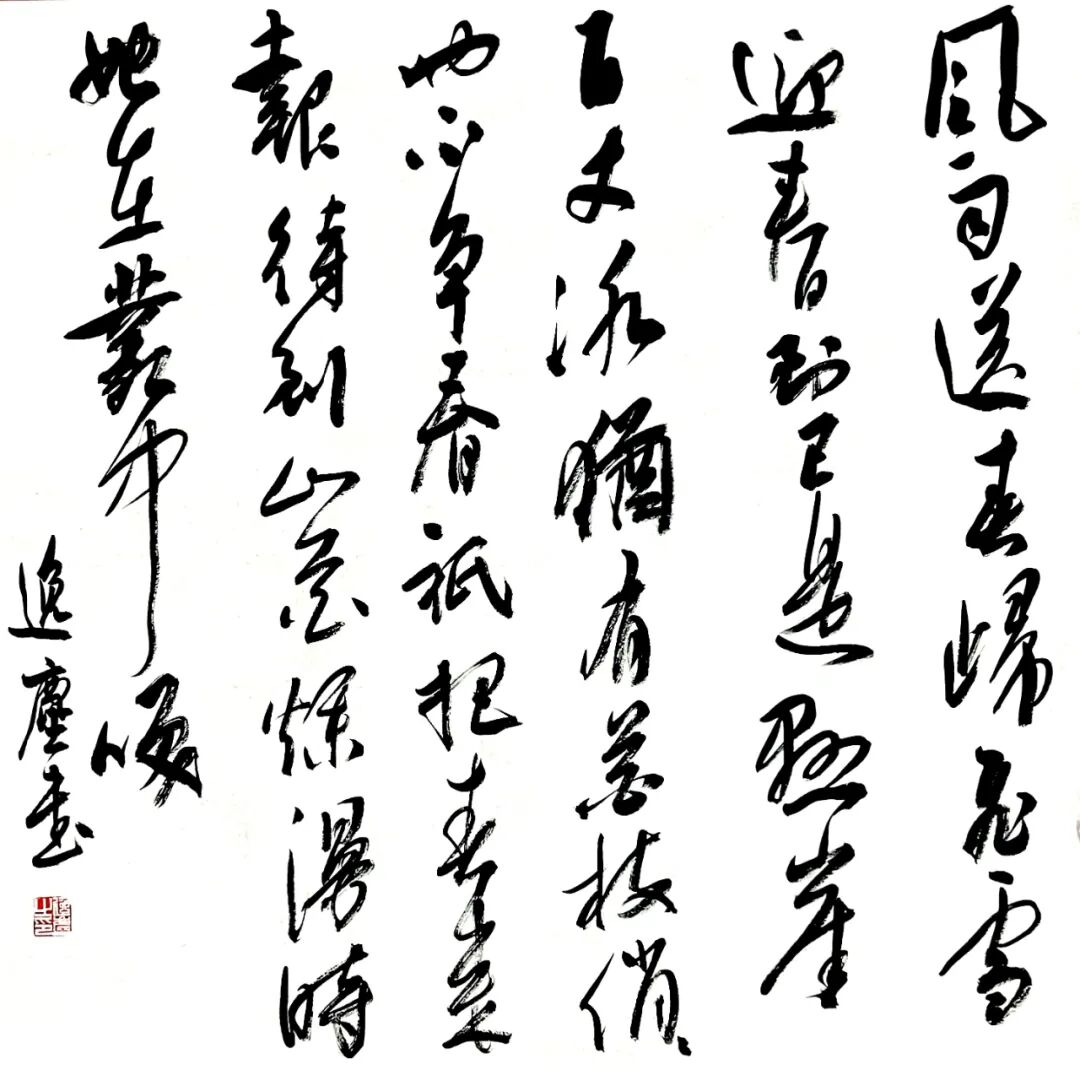 風雨送春歸飛雪
迎春到已是懸崖
百丈冰猶有花枝俏〻
也不爭春祇把春來
報待到山花爛漫時
她在叢中咲
逸塵書